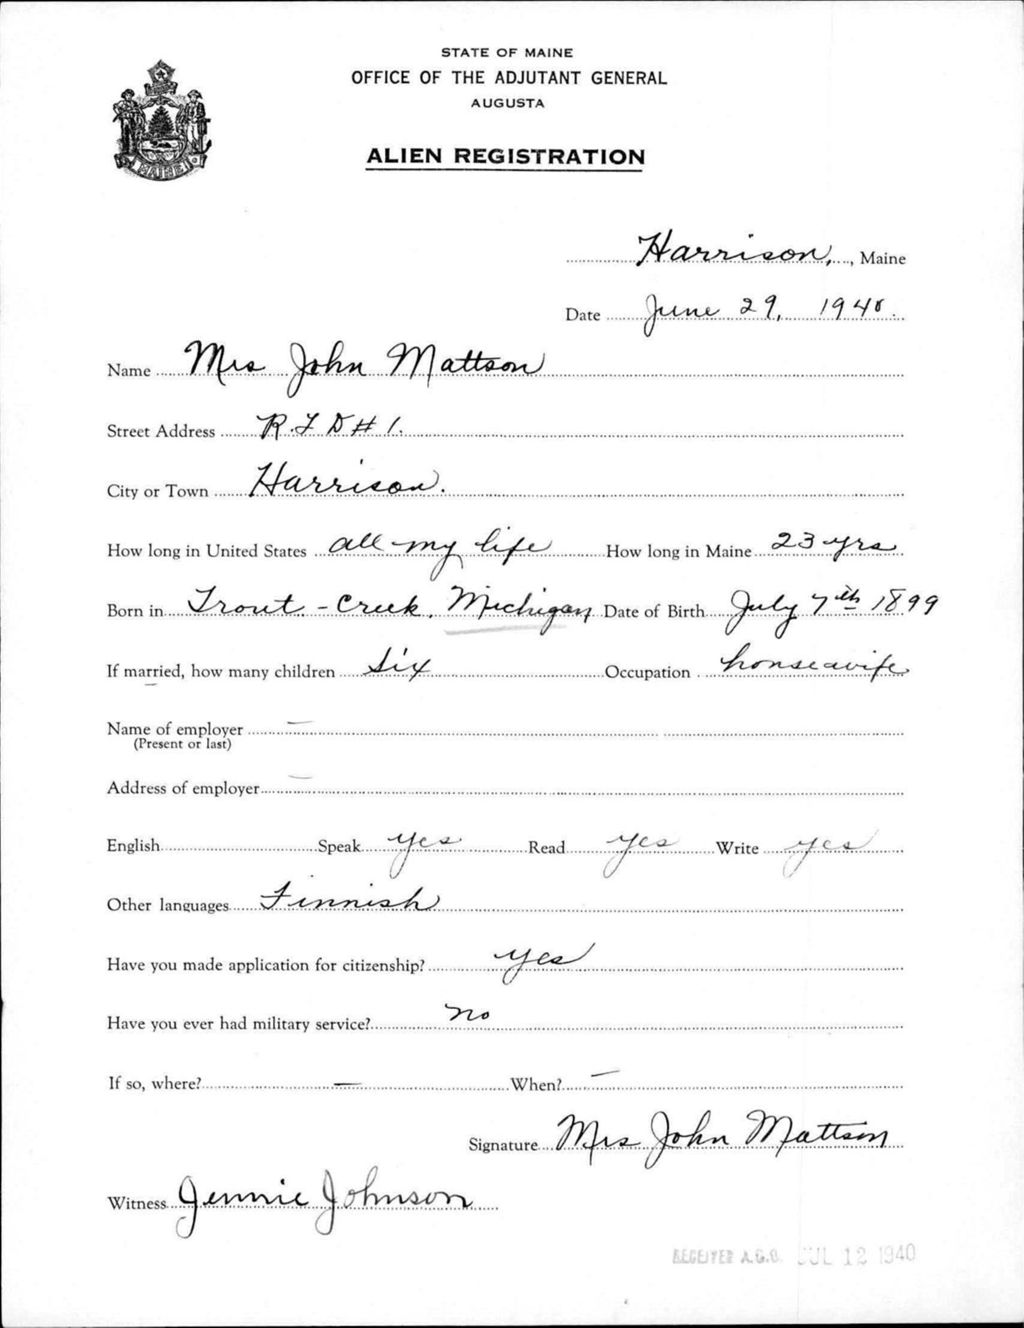 STATE OF MAINE
OFFICE OF THE ADJUTANT GENERAL
AUGUSTA
ALIEN REGISTRATION
MAINE
Harrison, , Maine
Date June 29, 1940.
Name Mrs John Mattson
Street Address R.F.D # 1.
City or Town Harrison.
How long in United States all my life How long in Maine 23 yrs.
Born in Trout-Creek, Michigan Date of Birth July 7th 1899
If married, how many children six Occupation housewife
Name of employer —
(Present or last)
Address of employer —
English Speak yes Read yes Write yes
Other languages Finnish
Have you made application for citizenship? yes
Have you ever had military service? no
If so, where? — When? —
Signature Mrs John Mattson
Witness Jennie Johnson
RECEIVED A.G.O. JUL 12 1940